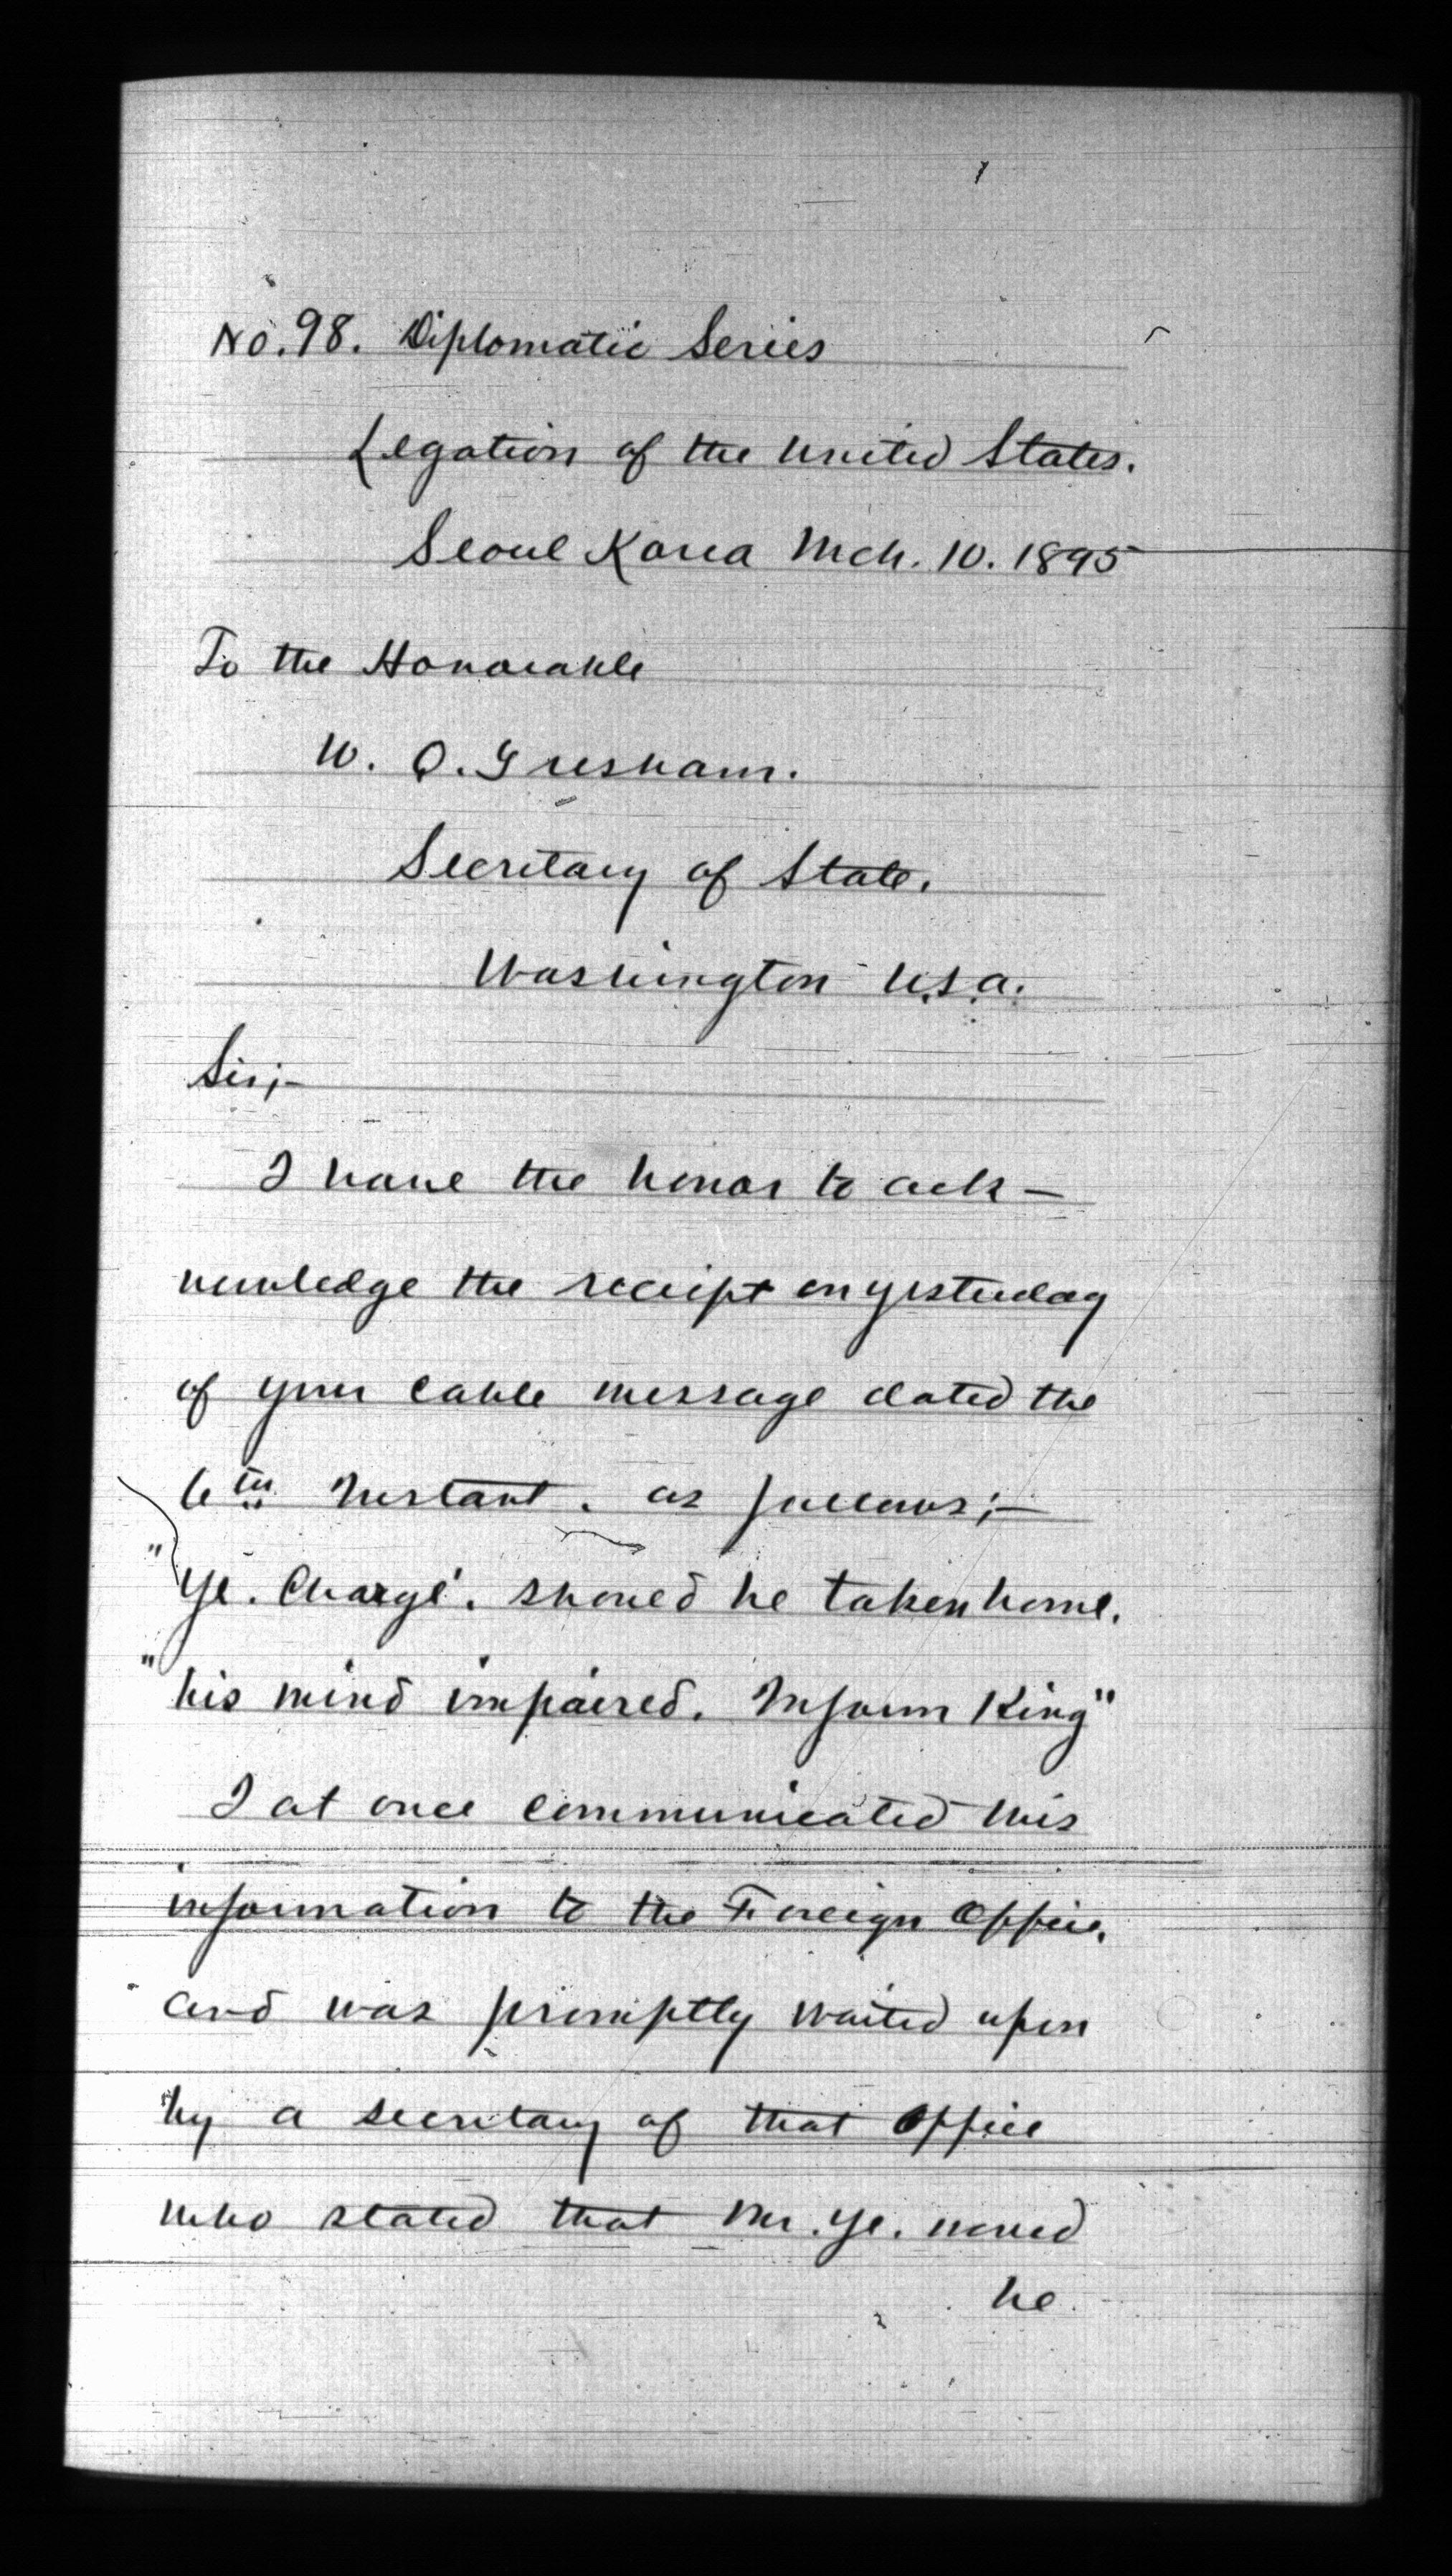 No. 98. Diplomatic Series
Legation of the United States.
Seoul Korea Mch. 10. 1895
To the Honorable
W. Q. Gresham.
Secretary of State.
Washington U.S.A.
Sir;—
I have the honor to ack-
nowledge the receipt on yesterday
of your cable message dated the
6th Instant. as follows;—
"Ye. Chargé. should be taken home.
"his mind impaired. Inform King"
I at once communicated this
information to the Foreign Office,
and was promptly waited upon
by a secretary of that Office
who stated that Mr. Ye. would
be